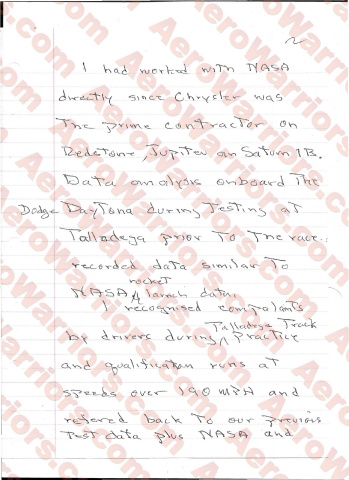 2
I had worked with NASA
directly since Chrysler was
The prime contractor on
Redstone, Jupiter an Saturn 1B.
Data analysis onboard The
Dodge Daytona during Testing at
Talladega prior To The race..
recorded data similar To
NASA rocket launch data.
I recognised complants
by drivers during Talladega Track Practice
and qualification runs at
speeds over 190 MPH and
refered back To our previous
Test data plus NASA and
AeroWarriors.com